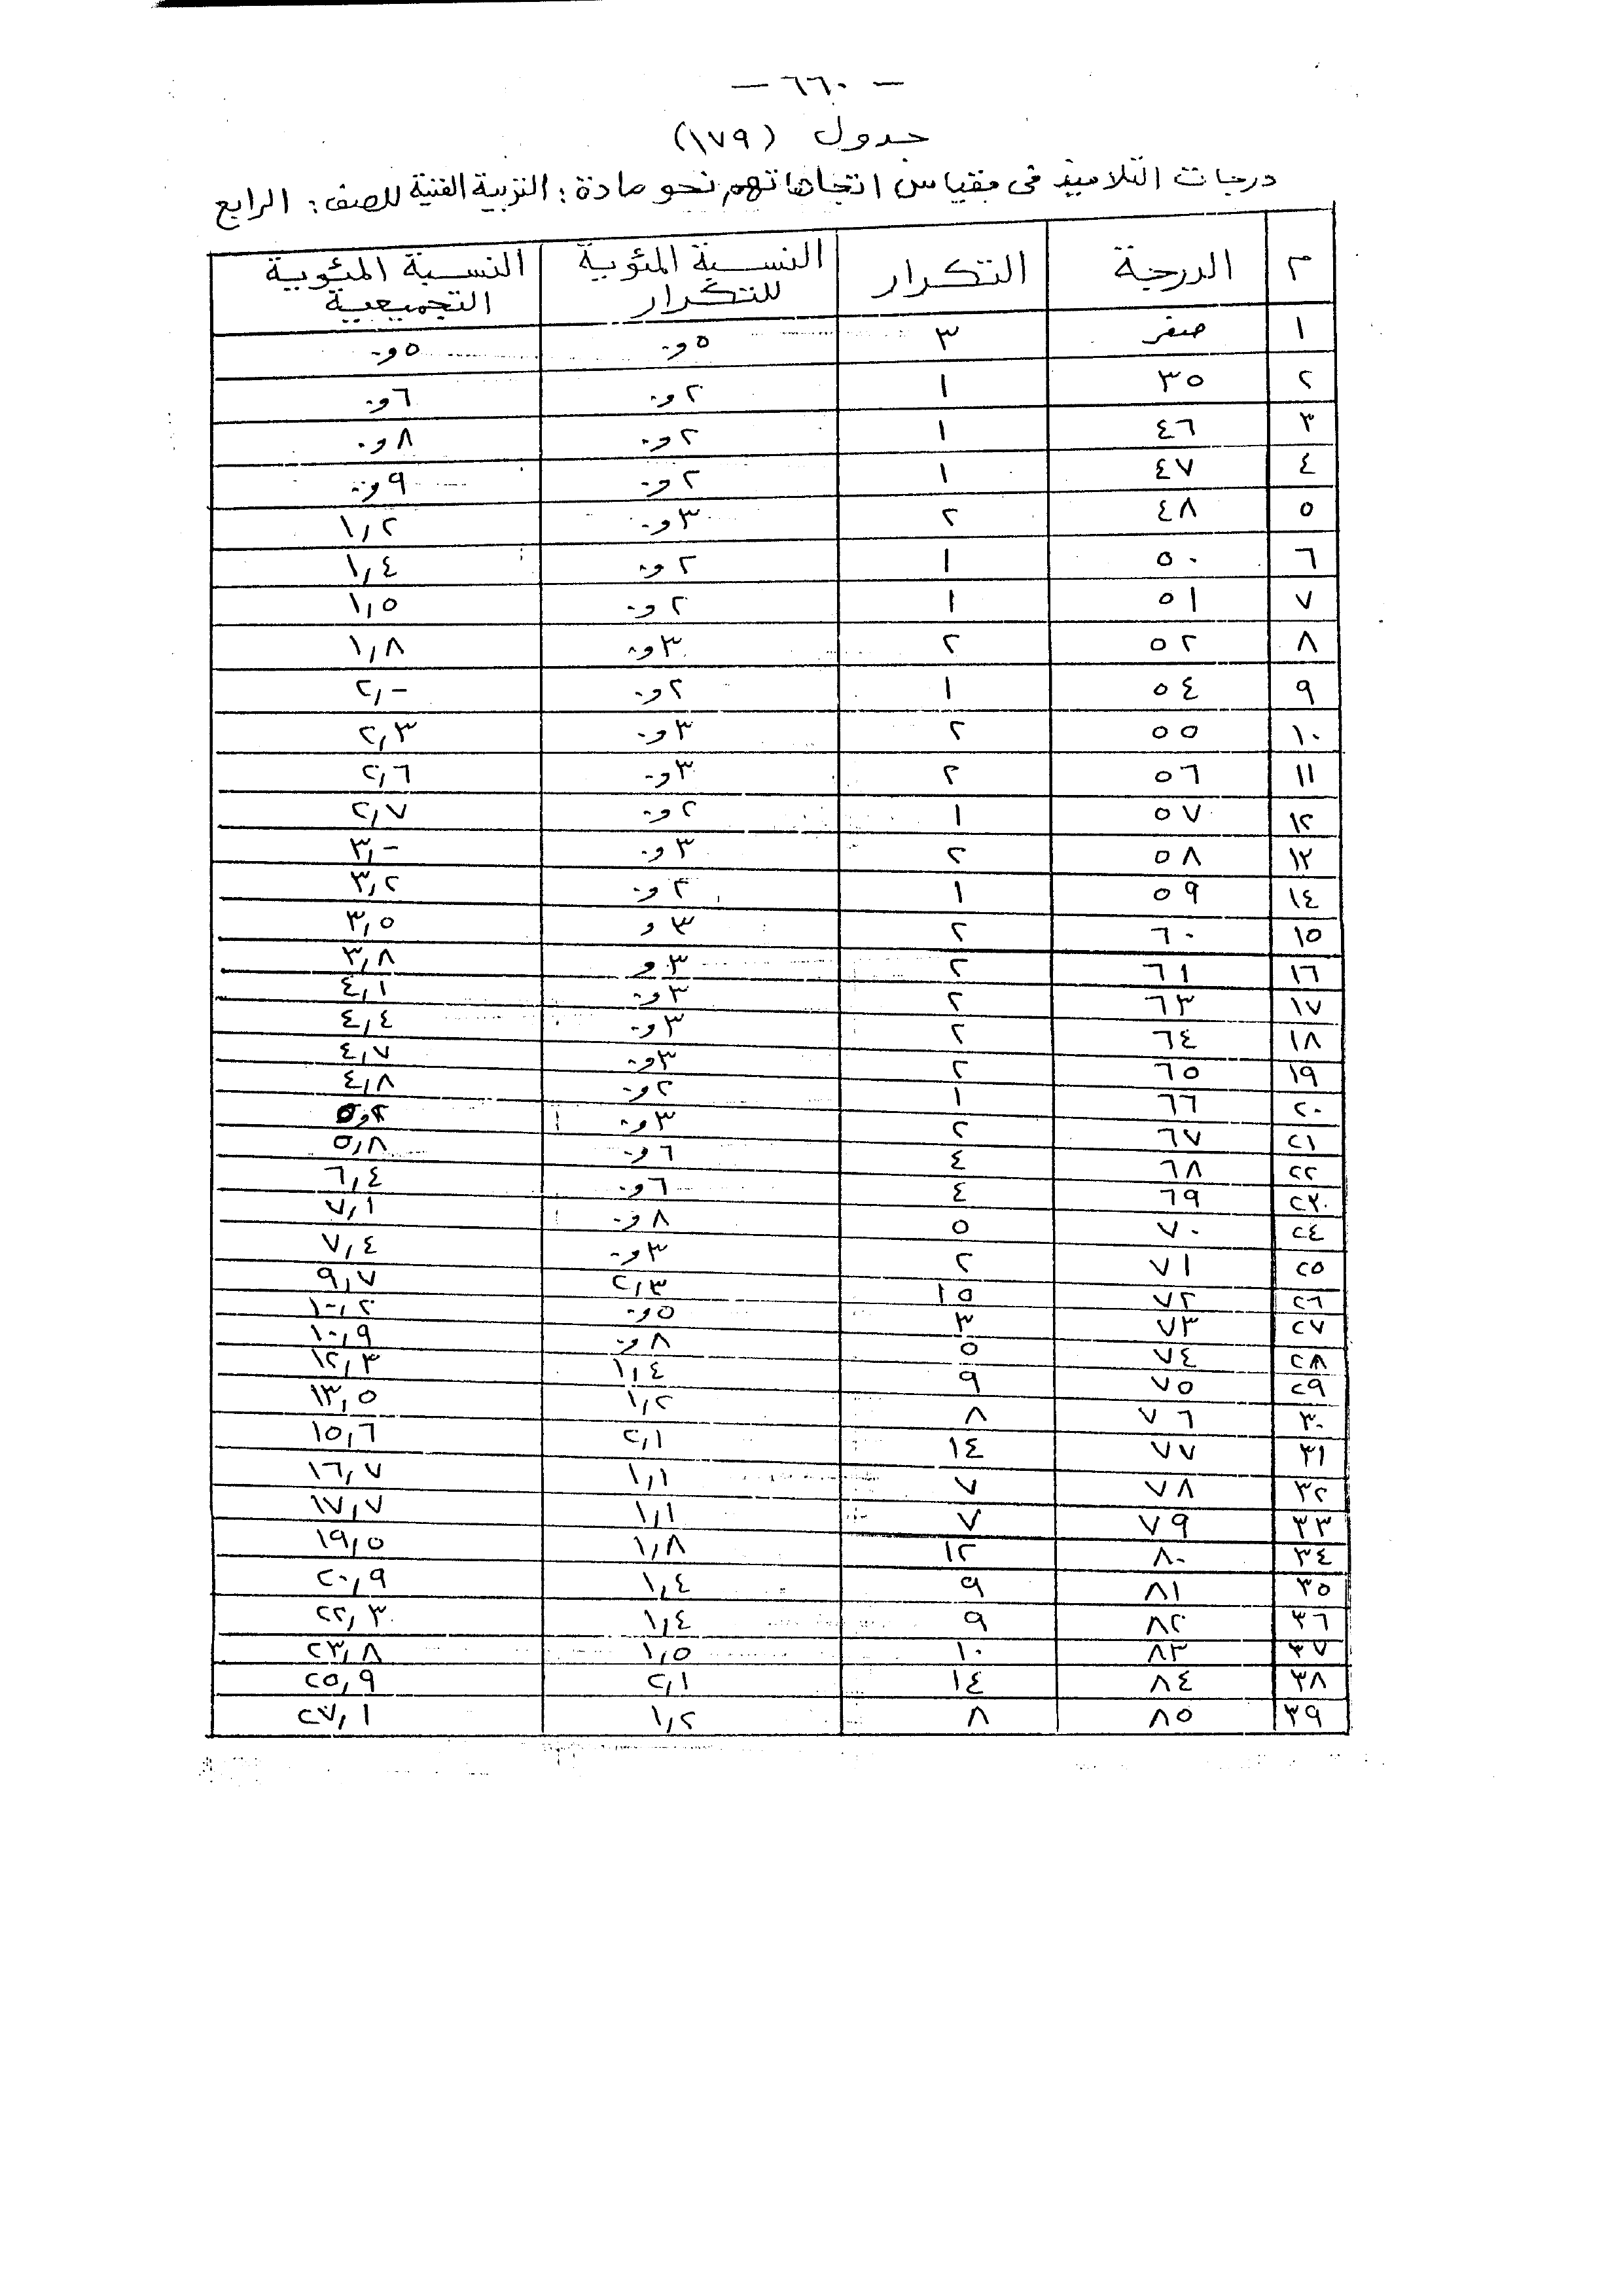 — ٦٦٠ —
جدول (١٧٩)
درجات التلاميذ فى مقياس اتجاهاتهم نحو مادة : التربية الفنية للصف : الرابع
م الدرجة التكرار النسبة المئوية للتكرار النسبة المئوية التجميعية
١ صفر ٣ ٥و٠ ٥و٠
٢ ٣٥ ١ ٢و٠ ٦و٠
٣ ٤٦ ١ ٢و٠ ٨و٠
٤ ٤٧ ١ ٢و٠ ٩و٠
٥ ٤٨ ٢ ٣و٠ ١,٢
٦ ٥٠ ١ ٢و٠ ١,٤
٧ ٥١ ١ ٢و٠ ١,٥
٨ ٥٢ ٢ ٣و٠ ١,٨
٩ ٥٤ ١ ٢و٠ ٢,-
١٠ ٥٥ ٢ ٣و٠ ٢,٣
١١ ٥٦ ٢ ٣و٠ ٢,٦
١٢ ٥٧ ١ ٢و٠ ٢,٧
١٣ ٥٨ ٢ ٣و٠ ٣,-
١٤ ٥٩ ١ ٢و٠ ٣,٢
١٥ ٦٠ ٢ ٣و ٣,٥
١٦ ٦١ ٢ ٣و ٣,٨
١٧ ٦٣ ٢ ٣و٠ ٤,١
١٨ ٦٤ ٢ ٣و٠ ٤,٤
١٩ ٦٥ ٢ ٣و٠ ٤,٧
٢٠ ٦٦ ١ ٢و٠ ٤,٨
٢١ ٦٧ ٢ ٣و٠ ٢و٥
٢٢ ٦٨ ٤ ٦و٠ ٥,٨
٢٣ ٦٩ ٤ ٦و٠ ٦,٤
٢٤ ٧٠ ٥ ٨و٠ ٧,١
٢٥ ٧١ ٢ ٣و٠ ٧,٤
٢٦ ٧٢ ١٥ ٢,٣ ٩,٧
٢٧ ٧٣ ٣ ٥و٠ ١٠,٢
٢٨ ٧٤ ٥ ٨و٠ ١٠,٩
٢٩ ٧٥ ٩ ١,٤ ١٢,٣
٣٠ ٧٦ ٨ ١,٢ ١٣,٥
٣١ ٧٧ ١٤ ٢,١ ١٥,٦
٣٢ ٧٨ ٧ ١,١ ١٦,٧
٣٣ ٧٩ ٧ ١,١ ١٧,٧
٣٤ ٨٠ ١٢ ١,٨ ١٩,٥
٣٥ ٨١ ٩ ١,٤ ٢٠,٩
٣٦ ٨٢ ٩ ١,٤ ٢٢,٣
٣٧ ٨٣ ١٠ ١,٥ ٢٣,٨
٣٨ ٨٤ ١٤ ٢,١ ٢٥,٩
٣٩ ٨٥ ٨ ١,٢ ٢٧,١